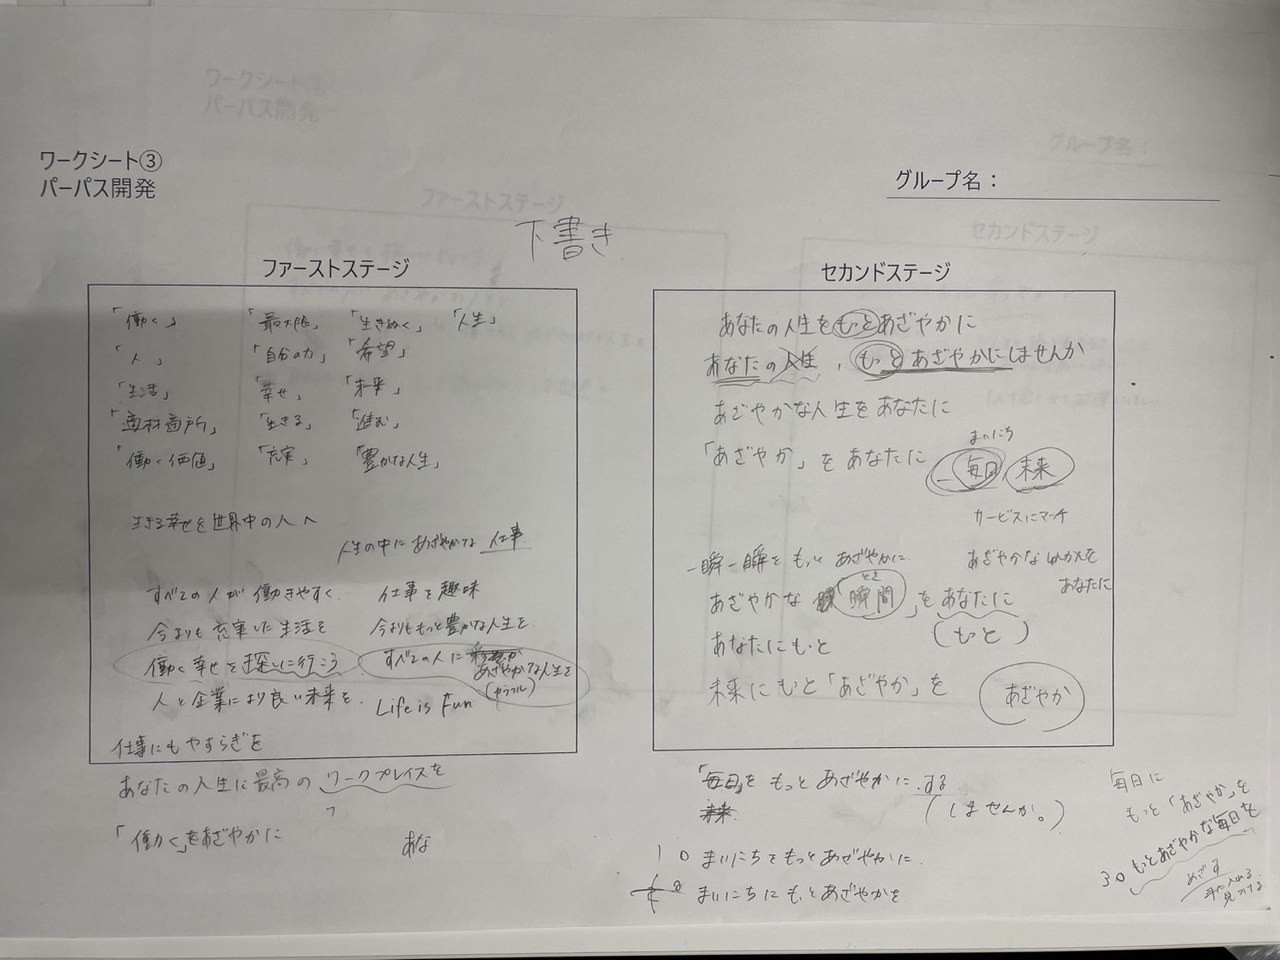 ワークシート③
パーパス開発
グループ名：
下書き
ファーストステージ
「働く」 「最大限」 「生きぬく」 「人生」
「人」 「自分の力」 「希望」
「生活」 「幸せ」 「未来」
「適材適所」 「生きる」 「進む」
「働く価値」 「充実」 「豊かな人生」
生きる幸せを世界中の人へ
人生の中にあざやかな仕事
すべての人が働きやすく 仕事を趣味
今よりも充実した生活を 今よりももっと豊かな人生を
働く幸せを探しに行こう すべての人に
あざやかな人生を
(カラフル)
人と企業により良い未来を. Life is Fun
仕事にもやすらぎを
あなたの人生に最高のワークプレイスを
「働く」をあざやかに あな
セカンドステージ
あなたの人生をもっとあざやかに
あなたの人生、もっとあざやかにしませんか
あざやかな人生をあなたに
まいにち
「あざやか」をあなたに 毎日 未来
サービスにマッチ
一瞬一瞬をもっとあざやかに あざやかな
あなたに
とき
あざやかな「瞬間」をあなたに
(もっと)
あなたにもっと
未来にもっと「あざやか」を あざやか
「毎日」をもっとあざやかにする
未来 (しませんか。)
毎日に
もっと「あざやか」を
1○ まいにちをもっとあざやかに.
まいにちにもっとあざやかを
3○ もっとあざやかな毎日を
めざす
手に入れる
見つける